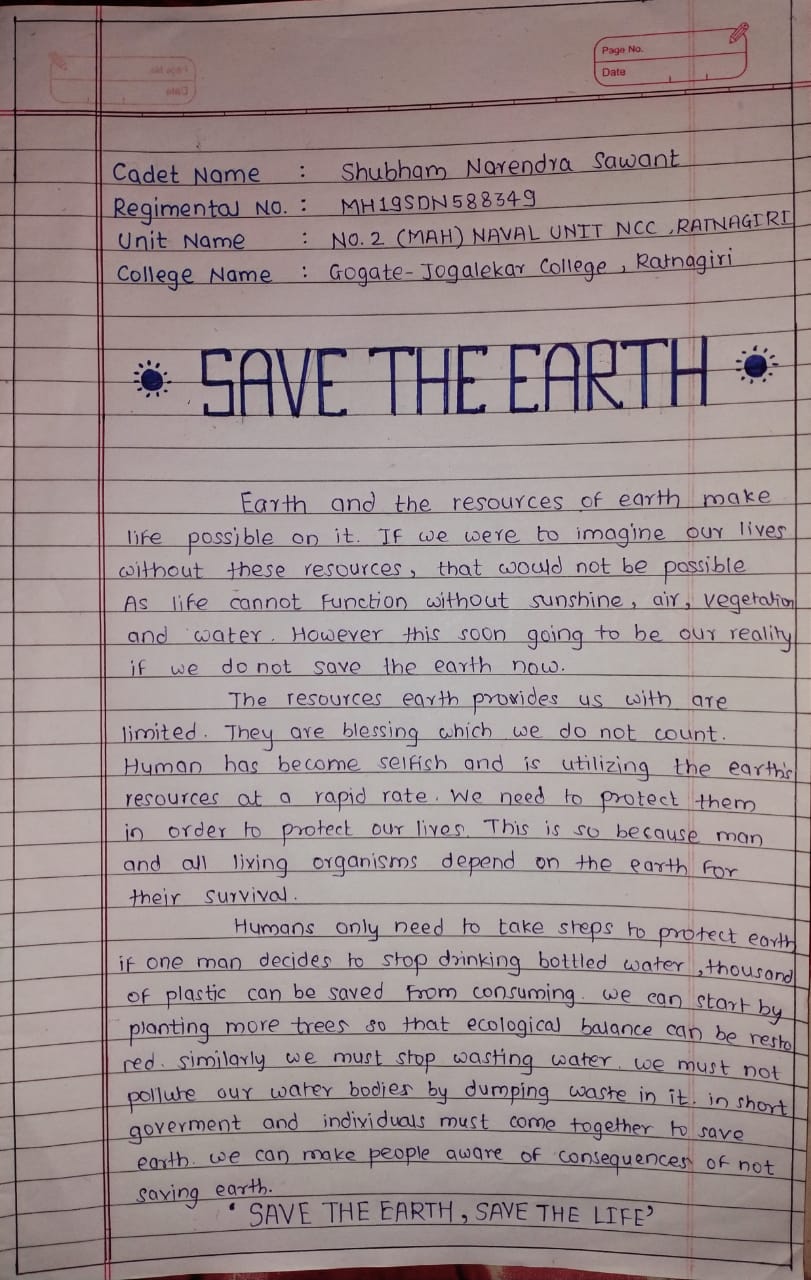 Page No.
Date
Cadet Name : Shubham Narendra Sawant
Regimental NO. : MH19SDN588349
Unit Name : NO.2 (MAH) NAVAL UNIT NCC ,RATNAGIRI
College Name : Gogate-Jogalekar College , Ratnagiri
SAVE THE EARTH
Earth and the resources of earth make
life possible on it. If we were to imagine our lives
without these resources, that would not be possible
As life cannot function without sunshine, air, vegetation
and water. However this soon going to be our reality
if we do not save the earth now.
The resources earth provides us with are
limited. They are blessing which we do not count.
Human has become selfish and is utilizing the earth's
resources at a rapid rate. We need to protect them
in order to protect our lives. This is so because man
and all living organisms depend on the earth for
their survival.
Humans only need to take steps to protect earth
if one man decides to stop drinking bottled water ,thousand
of plastic can be saved from consuming. we can start by
planting more trees so that ecological balance can be resto
red. similarly we must stop wasting water. we must not
pollute our water bodies by dumping waste in it. in short
goverment and individuals must come together to save
earth. we can make people aware of consequences of not
saving earth.
' SAVE THE EARTH, SAVE THE LIFE'